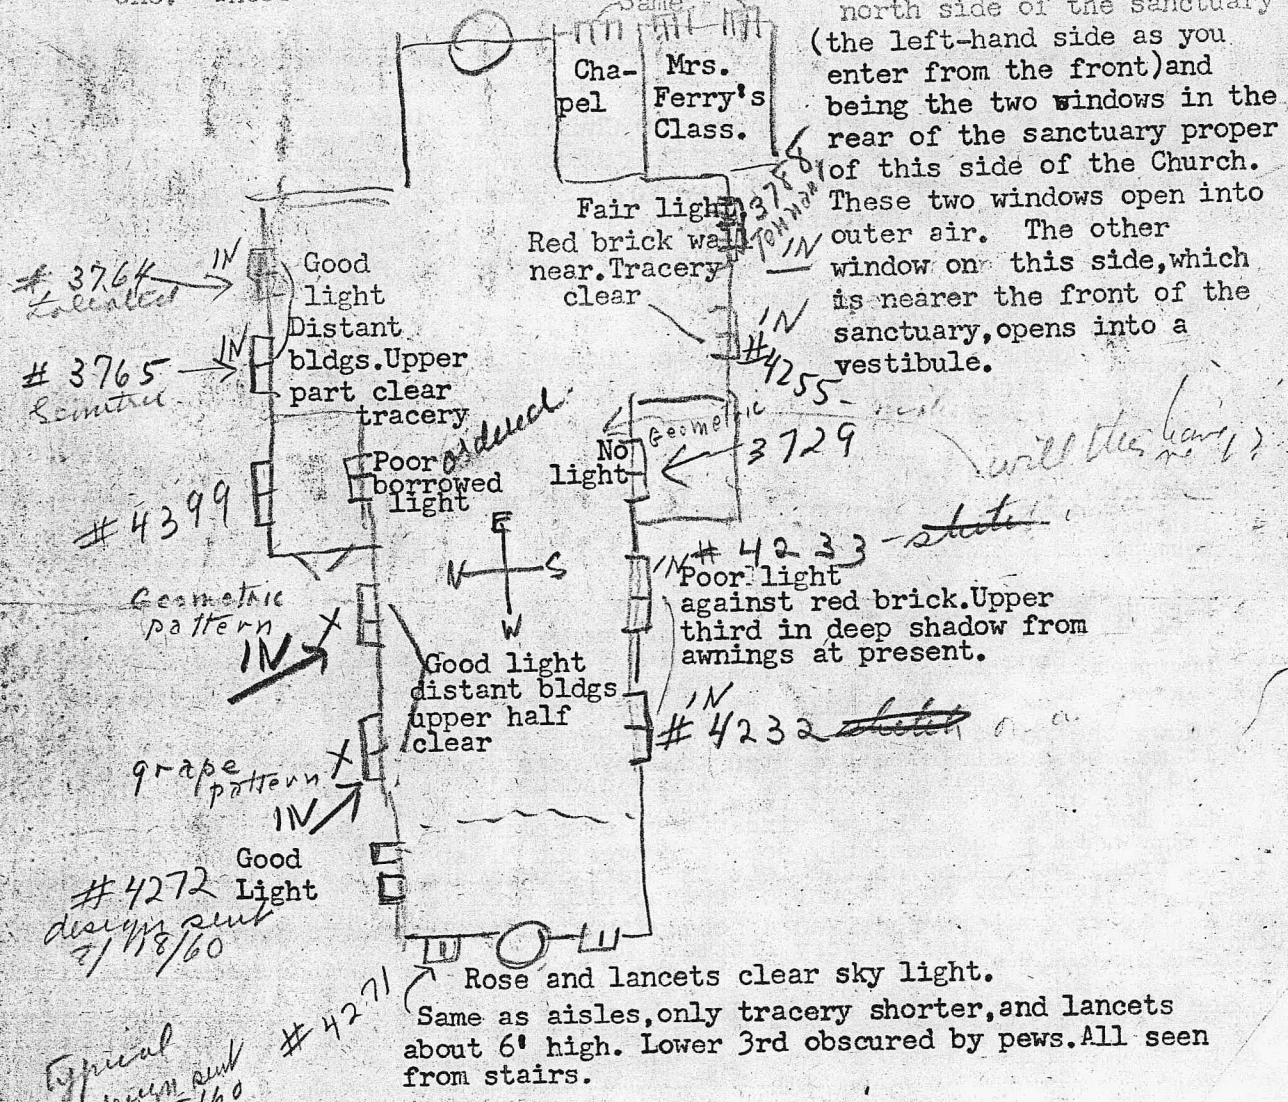 Same
north side of the sanctuary
(the left-hand side as you
enter from the front)and
being the two windows in the
rear of the sanctuary proper
of this side of the Church.
These two windows open into
outer air.  The other
window on  this side,which
is nearer the front of the
sanctuary,opens into a
vestibule.
Cha-
pel
Mrs.
Ferry's
Class.
Fair light.
Red brick wall
near.Tracery
clear
3788
IN
IN
#4255
# 3764
IN
Good
light
Distant
bldgs.Upper
part clear
tracery
# 3765
IN
ordered
Poor
borrowed
light
# 4399
No
light
Geometric
3729
will this have
E
N S
W
IN # 4233
Poor light
against red brick.Upper
third in deep shadow from
awnings at present.
Geometric
pattern
IN
X
Good light
distant bldgs
upper half
clear
IN
# 4232
grape
pattern
X
IN
Good
Light
#4272
design sent
/18/60
Rose and lancets clear sky light.
# 4271
Same as aisles,only tracery shorter,and lancets
about 6' high. Lower 3rd obscured by pews.All seen
from stairs.
Typical
sent
60